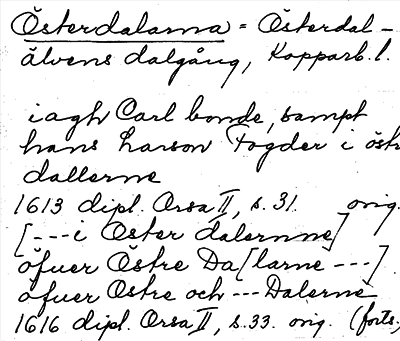 Österdalarna = Österdal-
älvens dalgång, Kopparb. l.
iagh Carl bonde, sampt
hans Larson Fogder i östr
dallerne
1613 dipl. Orsa II, s. 31. orig.
[---i Öster dalernne]
öfuer Östre Da[larne ---]
öfuer Ostre och --- Dalerne
1616 dipl. Orsa II, s. 33. orig. (forts.